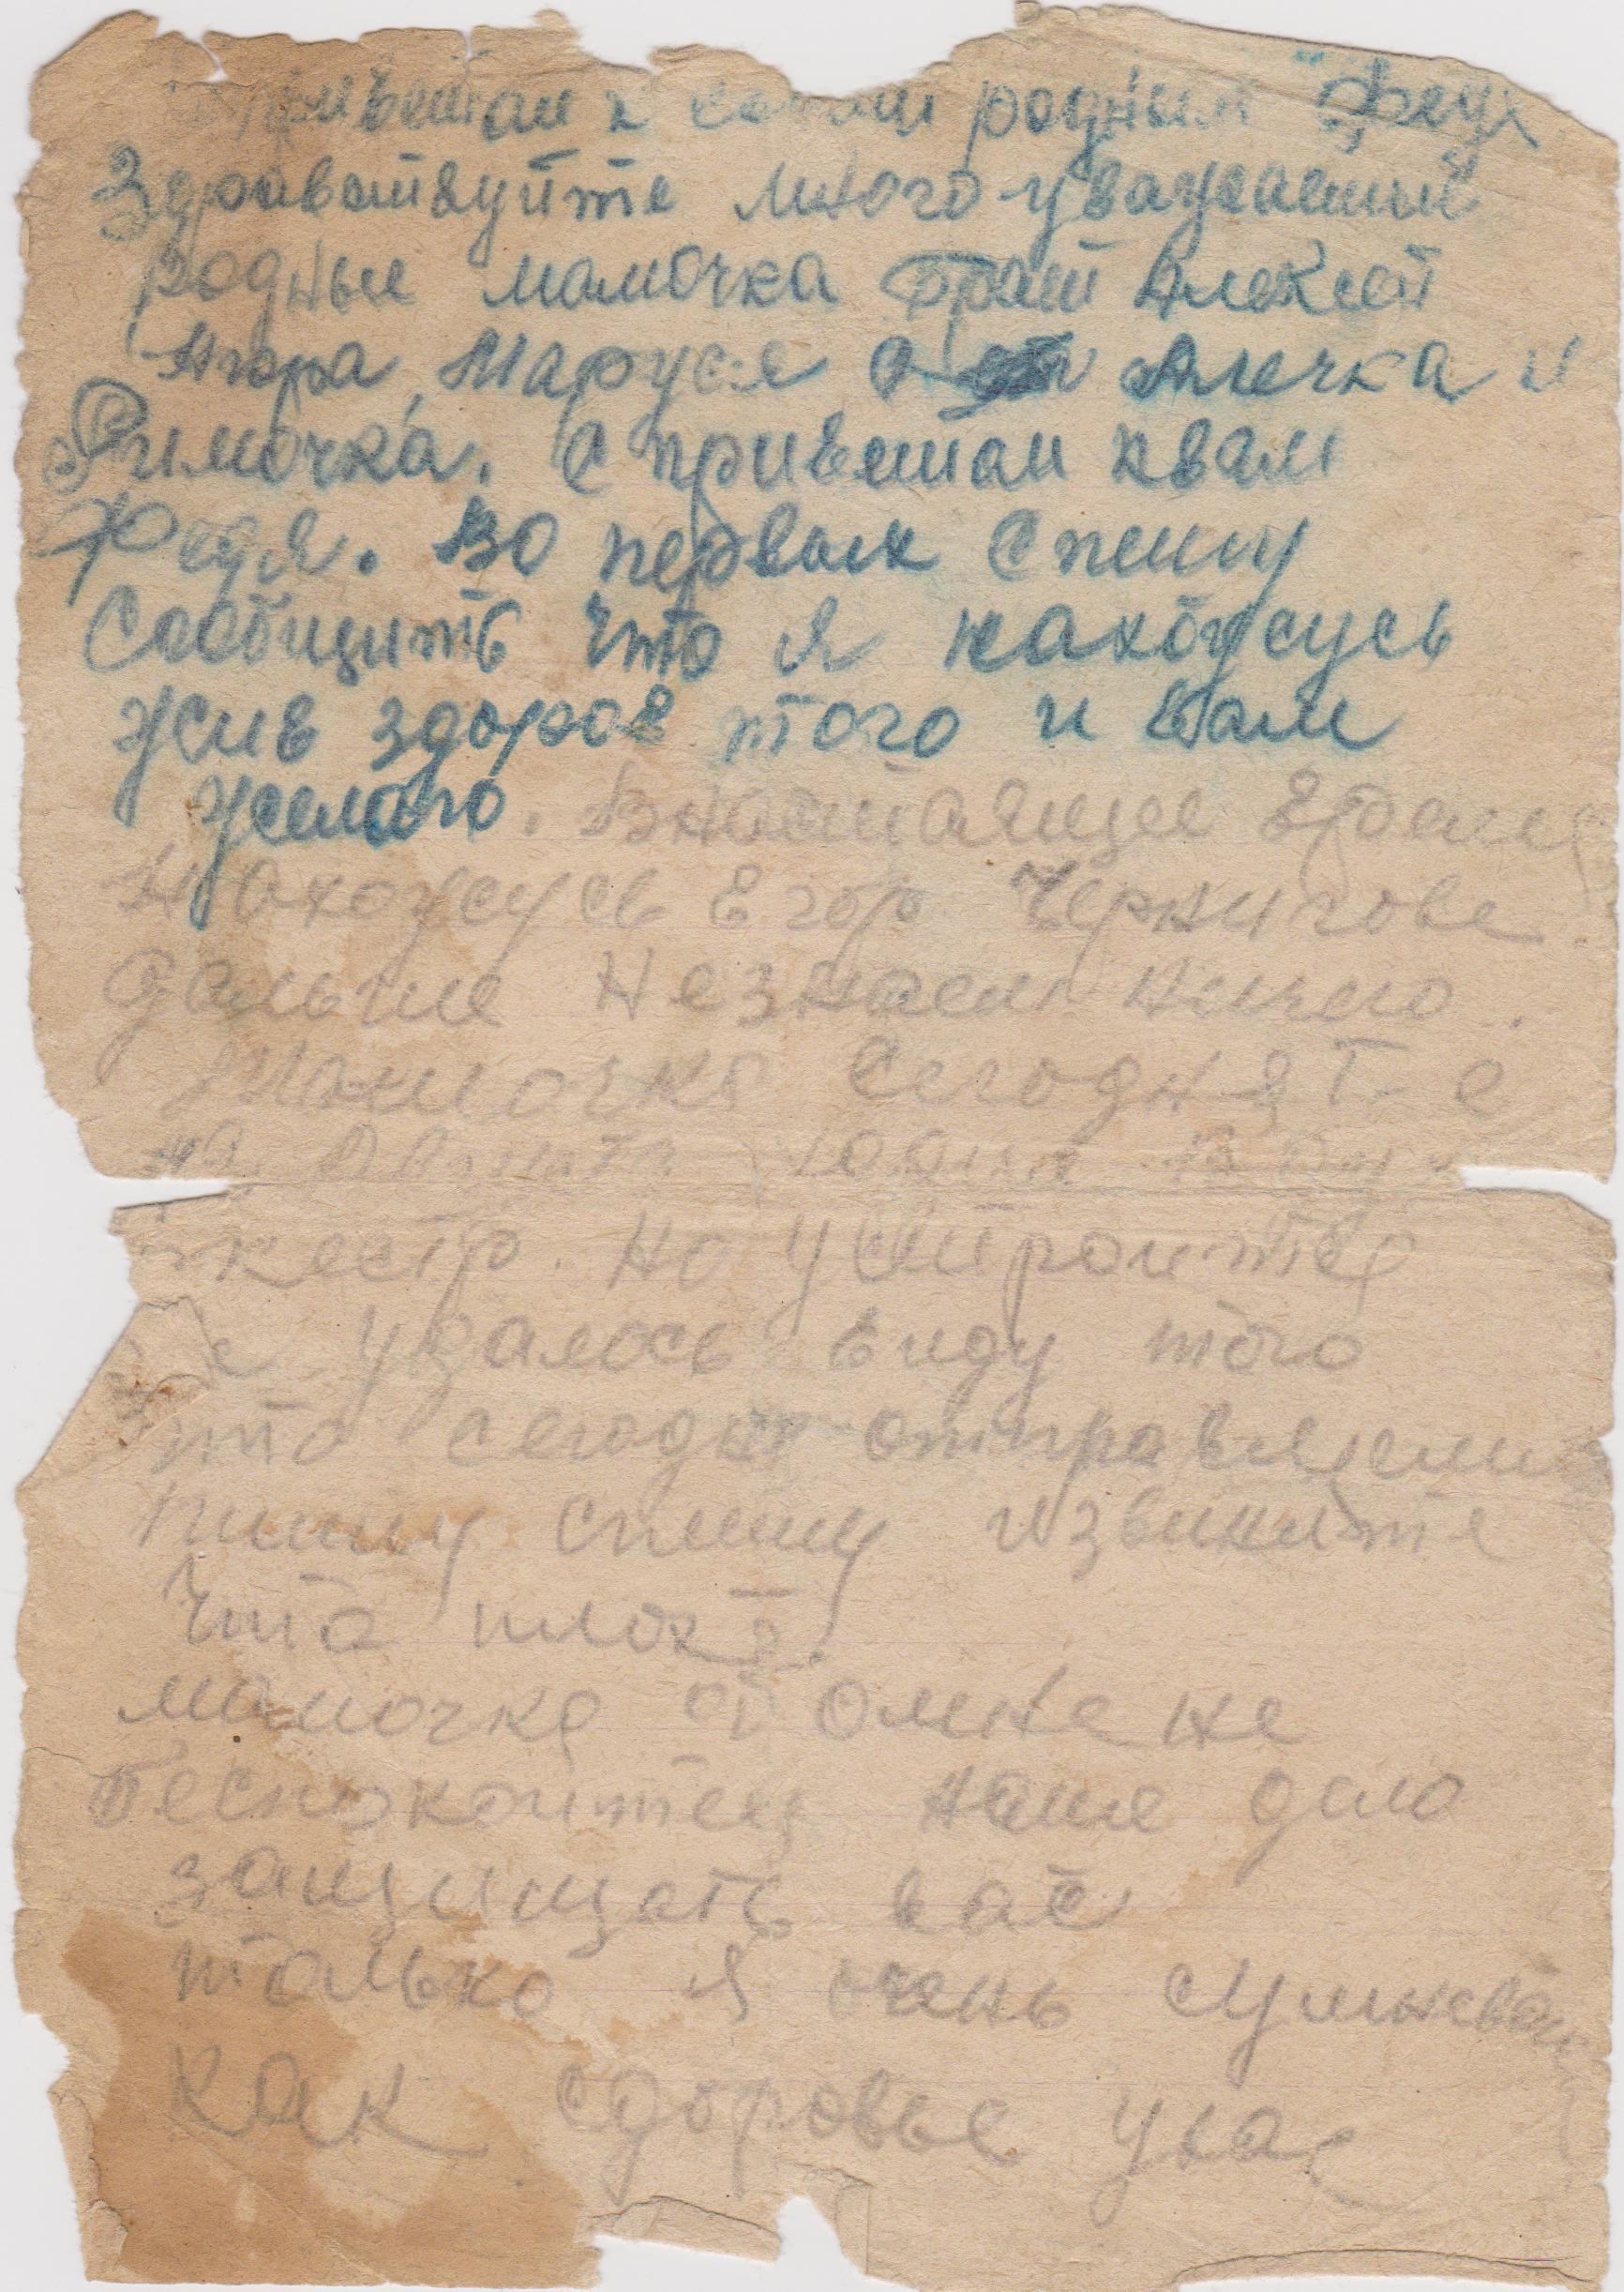 приветом к родным Федя
Здравствуйте много уважаемый
родные мамочка брат Алексей
Нюра, Маруся Алечка и
Римочка. С приветом квам
Федя. Во первых Спешу
Сообщить что я нахожусь
жив здоров того и вам
желаю. Внастоящее время
Нахожусь вгор Чернигове
дальше Незнаем ничего.
Мамочка Сегодня

но устроится
удалось ввиду того
что сегодня отправляем
пишу спешу извините
что плохо.
мамочка омне не
беспокойтесь наше дело
защищать вас
только я очень сумневаюс
как сдоровье увас